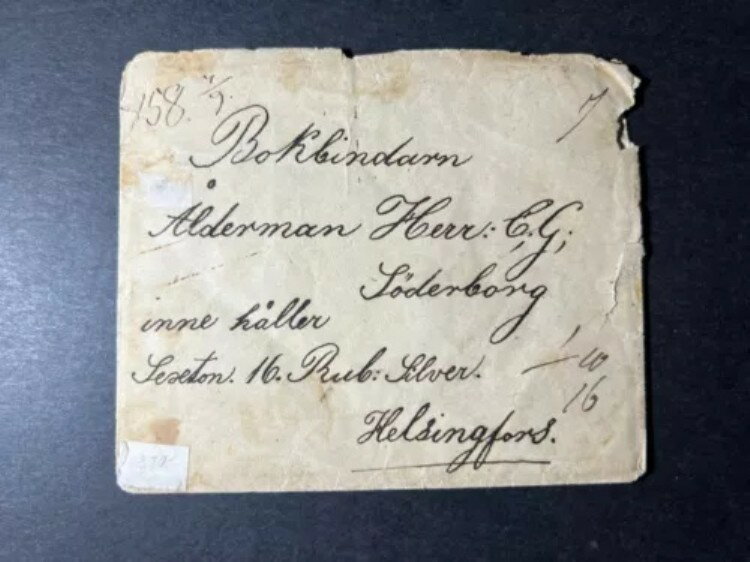 158.
7
Bokbindarn
Ålderman Herr: C. G;
Söderborg
inne håller
Sexton. 16. Rub: Silver.
10
16
Helsingfors.